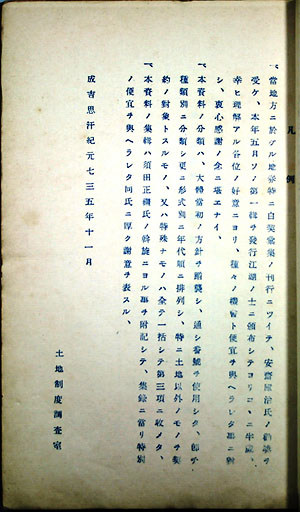 凡例
一、當地方ニ於ケル地券特ニ白契彙集ノ刊行ニツイテ、安齋庫治氏ノ
受ケ、本年五月ソノ第一輯ヲ發行江湖ノ士ニ頒布シテヨリココニ半歳、
幸ヒ理解アル各位ノ好意ニヨリ、種々ノ機會ト便宜ヲ與ヘラレタ事ニ對
シ、衷心感謝ノ念ニ堪エナイ、
一、本資料ノ分類ハ、大體當初ノ方針ヲ踏襲シ、通シ番號ヲ使用シタ、卽チ
種類別ニ分類シ更ニ形式別ニ年代順ニ排列シ、特ニ土地以外ノモノヲ契
約ノ對象トスルモノ、又ハ特殊ナモノハ全テ一括シテ第三項ニ收メタ、
一、本資料ノ集輯ハ須田正繼氏ノ斡旋ニヨル事ヲ附記シテ、集錄ニ當リ特別
ノ便宜ヲ與ヘラレタ同氏ニ厚ク謝意ヲ表スル、
成吉思汗紀元七三五年十一月
土地制度調査室